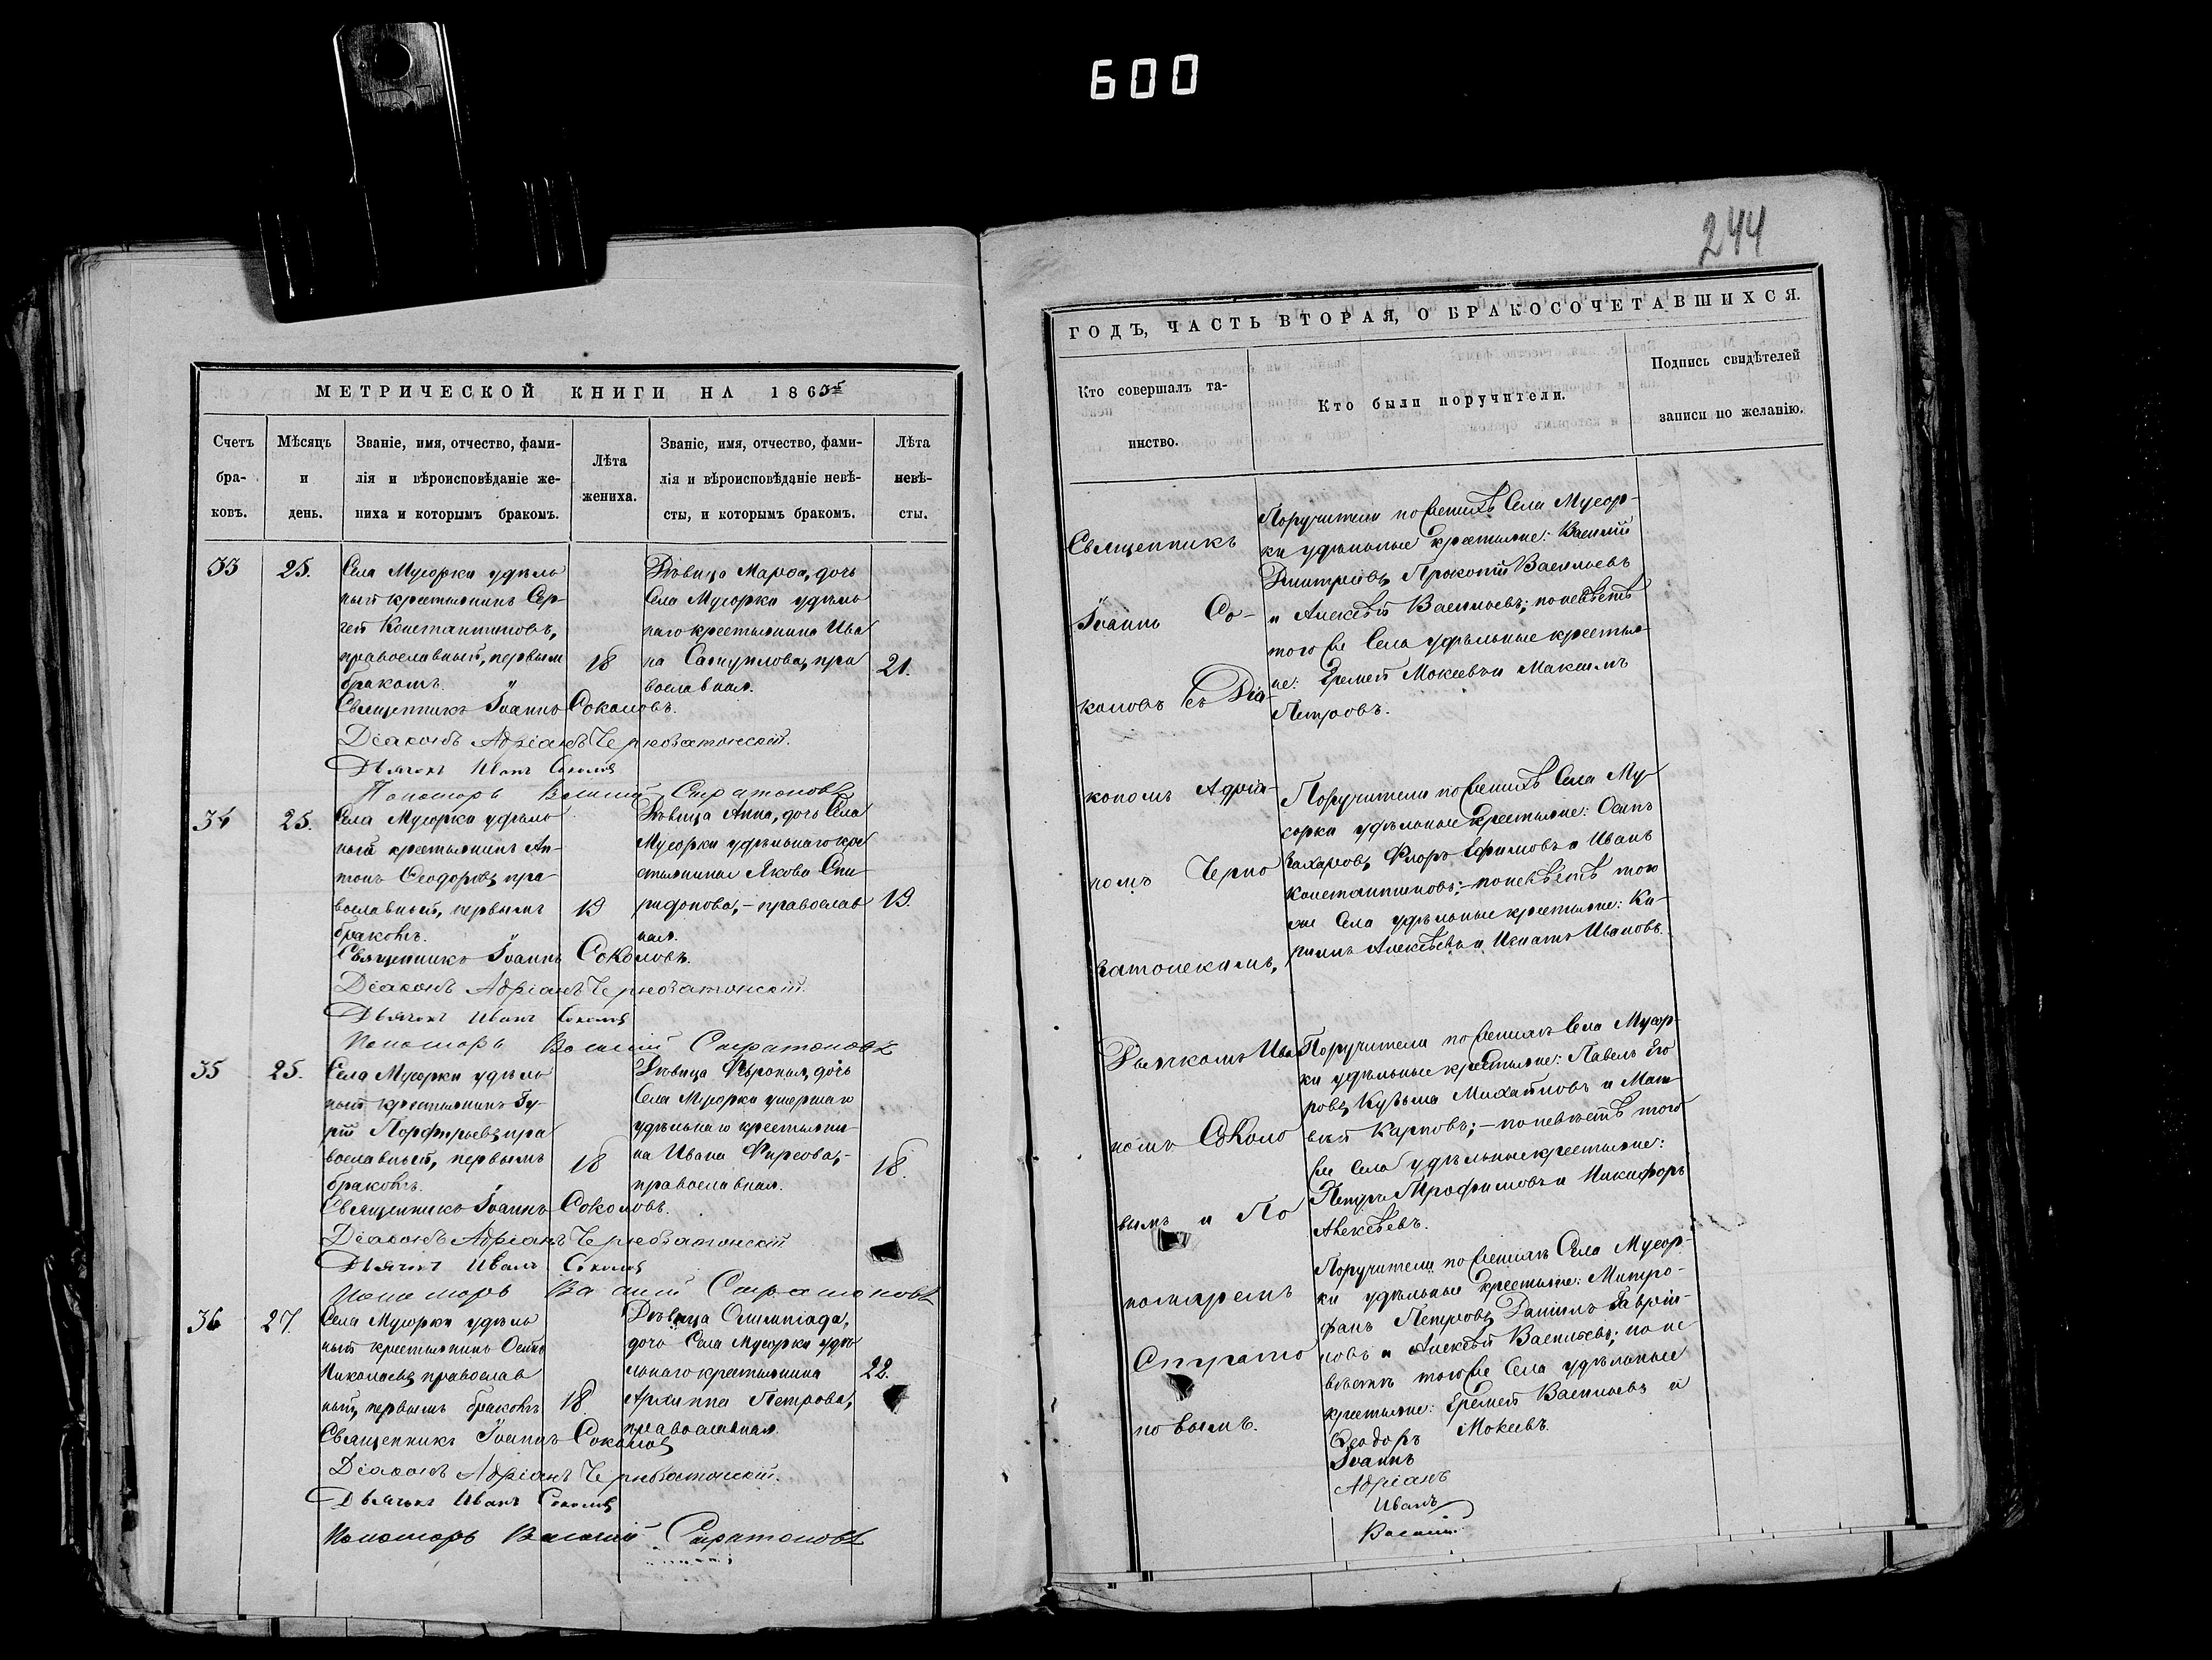 600
МЕТРИЧЕСКОЙ КНИГИ НА 1865
Счетъ бра-ковъ.
Мѣсяцъ и день.
Званіе, имя, отчество, фами-
лія и вѣроисповѣданіе же-
ниха и которымъ бракомъ.
Лѣта жениха.
Званіе, имя, отчество, фами-
лія и вѣроисповѣданіе невѣ-
сты, и которымъ бракомъ.
Лѣта невѣ-сты.
33
25.
Села Мусорки удѣль
ный крестьянинъ Сер-
гей Константиновъ,
православный, первым
бракомъ.
18
Дѣвица Марѳа, дочь
Села Мусорки удѣль
наго крестьянина Ива
на Самуилова, пра
вославная.
21.
Священникъ Іоаннъ Соколовъ.
Діаконъ Адріанъ Чернозатонскій.
Дьячокъ Иванъ Соколов
Пономарь Василий Стратоновъ
34
25.
Села Мусорки удѣль
ный крестьянинъ Ан-
тонъ Ѳеодоровъ, пра-
вославный, первымъ
бракомъ.
19
Дѣвица Анна, дочь Села
Мусорки удѣльнаго кре
стьянина Якова Спи-
ридонова, - православ
ная.
19.
Священникъ Іоаннъ Соколовъ.
Діаконъ Адріанъ Чернозатонскій.
Дьячокъ Иванъ Соколов
Пономарь Василий Стратоновъ
35
25.
Села Мусорки удѣль
ный крестьянинъ Гу-
рій Порфирьевъ, пра
вославный, первымъ
бракомъ.
18
Дѣвица Февронья, дочь
Села Мусорки умершаго
удѣльнаго крестьяни-
на Ивана Фирсова, -
православная.
18.
Священникъ Іоаннъ Соколовъ.
Діаконъ Адріанъ Чернозатонскій
Дьячокъ Иванъ Соколов
Пономарь Василий Стратоновъ
36
27.
Села Мусорки удѣль
ный крестьянинъ Осипъ
Николаевъ, православ
ный, первымъ бракомъ
18.
Дѣвица Олимпіада,
дочь Села Мусорки удѣ
льнаго крестьянина
Архиппа Петрова,
православная.
22.
Священникъ Іоаннъ Соколов
Діаконъ Адріанъ Чернозатонскій.
Дьячокъ Иванъ Соколов
Пономарь Василий Стратоновъ
244
ГОДЪ, ЧАСТЬ ВТОРАЯ, О БРАКОСОЧЕТАВШИХСЯ.
Кто совершалъ та-
инство.
Кто были поручители.
Подпись свидѣтелей
записи по желанію.
Священникъ
Іоаннъ Со-
коловъ съ Діа-
кономъ Адріа-
номъ Черно
затонскимъ,
Дьячкомъ Ива
номъ Соколо
вымъ и По
номаремъ
Страто
новымъ.
Поручители по женихѣ Села Мусор-
ки удѣльные крестьяне: Василій
Дмитріевъ, Прокопій Васильевъ
и Алексѣй Васильевъ; по невѣстѣ
того же Села удѣльные крестья-
не: Еремей Мокеевъ и Максимъ
Петровъ.
Поручители по женихѣ Села Му-
сорки удѣльные крестьяне: Осипъ
Захаровъ, Флоръ Ефимовъ и Иванъ
Константиновъ; - по невѣстѣ того
же Села удѣльные крестьяне: Ки-
риллъ Алексѣевъ и Игнатъ Ивановъ.
Поручители по женихѣ Села Мусор-
ки удѣльные крестьяне: Павелъ Его
ровъ, Кузьма Михайловъ и Мат-
вѣй Карповъ; - по невѣстѣ того
же Села удѣльные крестьяне:
Петръ Трофимовъ и Никифоръ
Алексѣевъ.
Поручители по женихѣ Села Мусор-
ки удѣльные крестьяне: Митро-
фанъ Петровъ, Даніилъ Гаврии-
ловъ и Алексѣй Васильевъ; по не
вѣстѣ того же Села удѣльные
крестьяне: Еремей Васильевъ и
Ѳеодоръ Мокеевъ.
Іоаннъ
Адріанъ
Иванъ
Василий